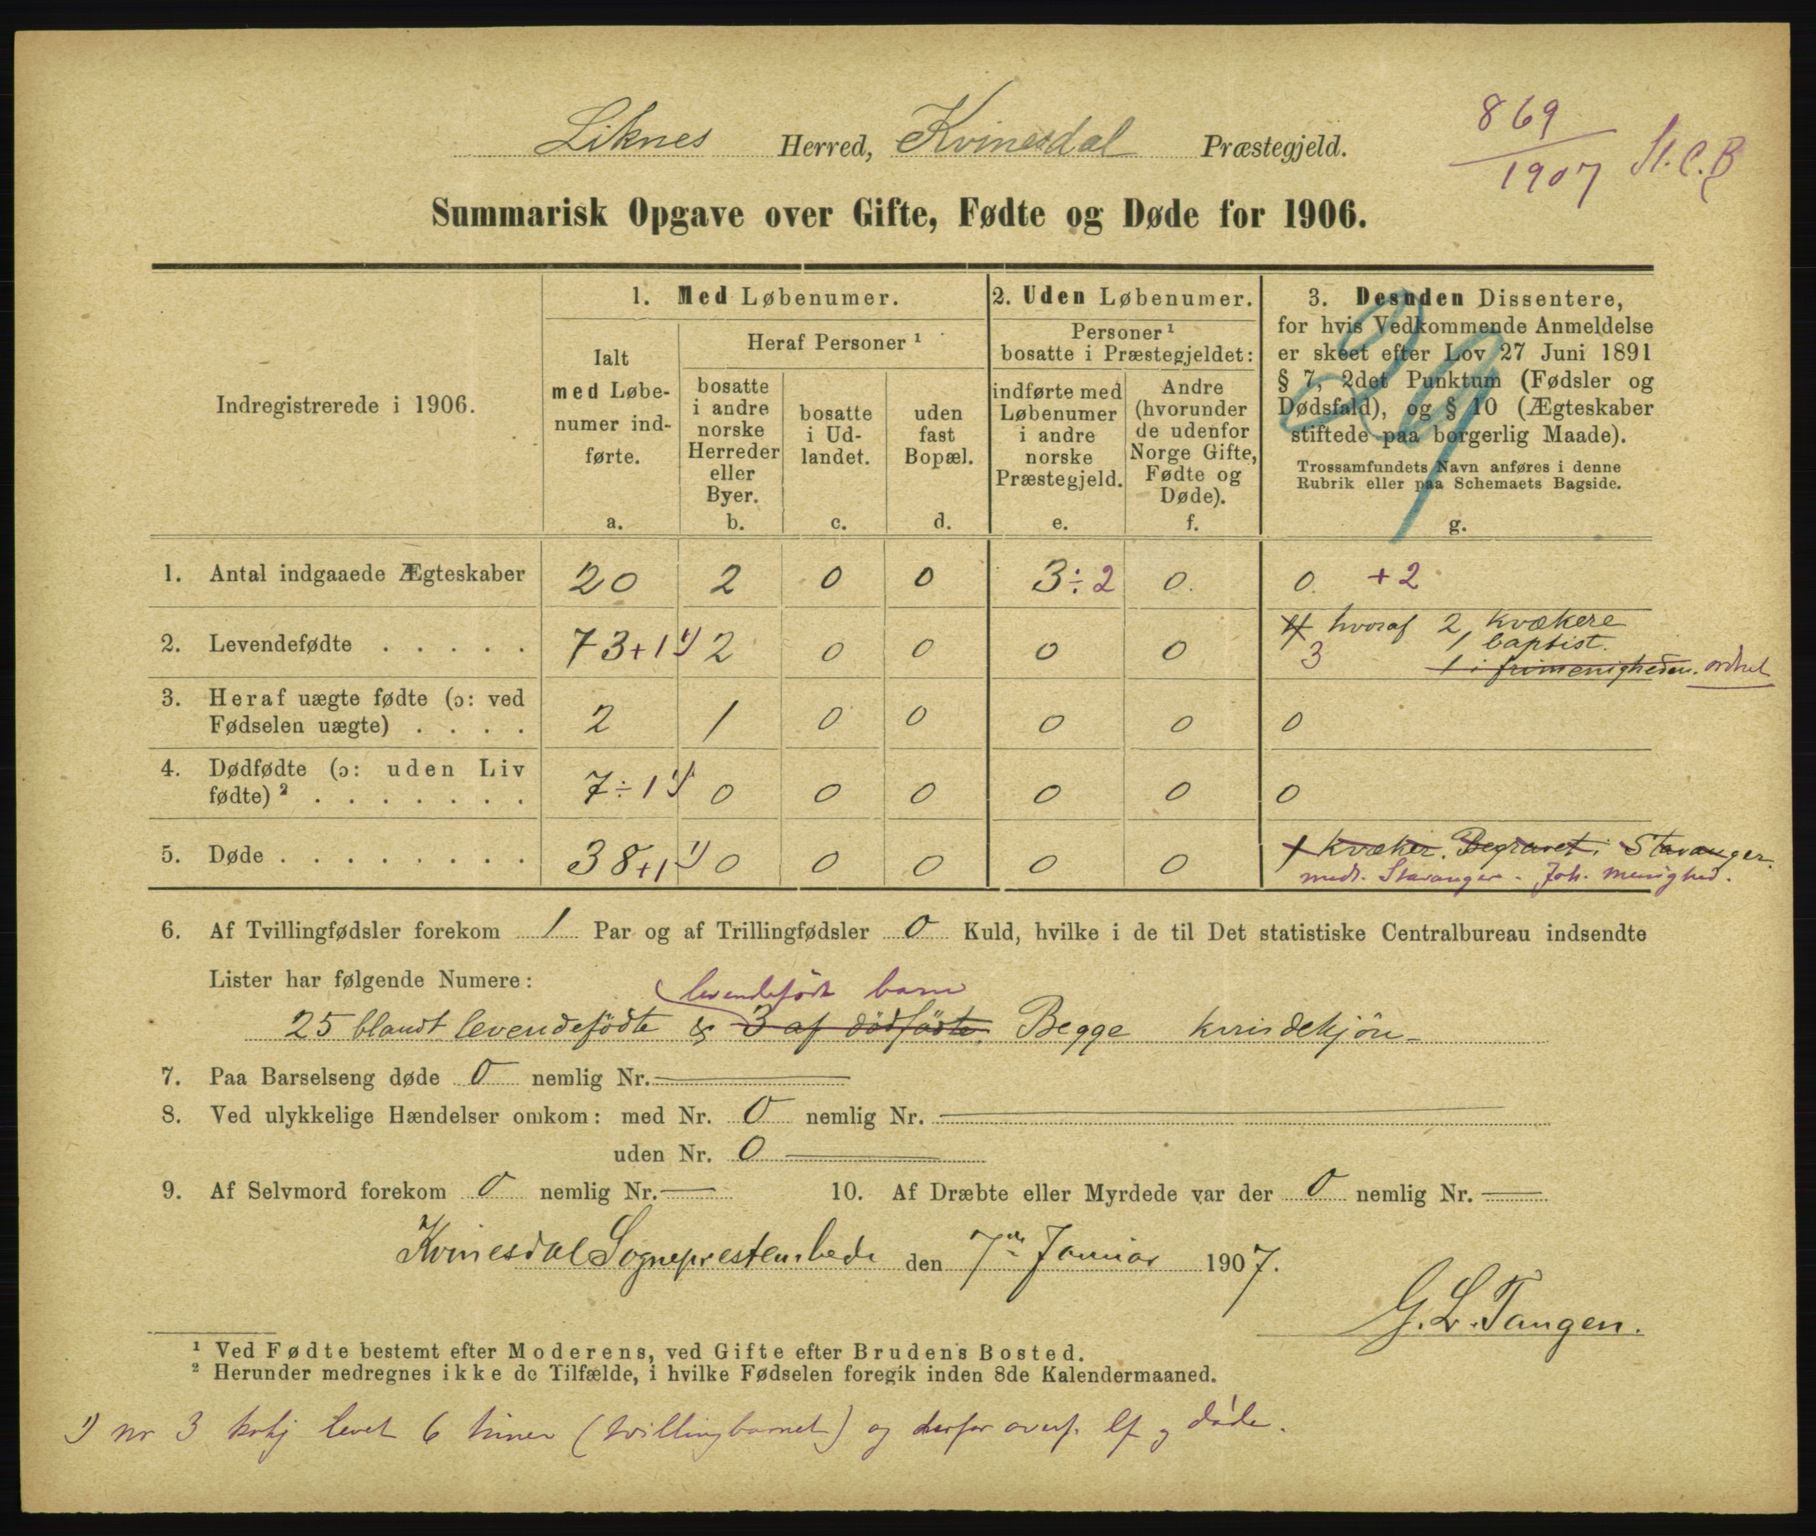 869
1907 St. C. B
Liknes Herred, Kvinesdal Præstegjeld.
Summarisk Opgave over Gifte, Fødte og Døde for 1906.
29
Indregistrerede i 1906.
1. Med Løbenumer.
Ialt
med Løbe-
numer ind-
førte.
a.
Heraf Personer ¹
bosatte
i andre
norske
Herreder
eller
Byer.
b.
bosatte
i Ud-
landet.
c.
uden
fast
Bopæl.
d.
2. Uden Løbenumer.
Personer ¹
bosatte i Præstegjeldet:
indførte med
Løbenumer
i andre
norske
Præstegjeld.
e.
Andre
(hvorunder
de udenfor
Norge Gifte,
Fødte og
Døde).
f.
3. Desuden Dissentere,
for hvis Vedkommende Anmeldelse
er skeet efter Lov 27 Juni 1891
§ 7, 2det Punktum (Fødsler og
Dødsfald), og § 10 (Ægteskaber
stiftede paa borgerlig Maade).
Trossamfundets Navn anføres i denne
Rubrik eller paa Schemaets Bagside.
g.
1. Antal indgaaede Ægteskaber 20 2 0 0 3 ÷ 2 0. 0. + 2
2. Levendefødte . . . . . 73 + 1 ¹) 2 0 0 0 0 4 hvoraf 2 kvækere
1 baptist.
3 1 i frimenigheden.
3. Heraf uægte fødte (ɔ: ved
Fødselen uægte) . . . . 2 1 0 0 0 0 0
4. Dødfødte (ɔ: uden Liv
fødte) ² . . . . . . . 7 ÷ 1 ¹) 0 0 0 0 0 0
5. Døde . . . . . . . . 38 + 1 ¹) 0 0 0 0 0 1 kvæker. Begravet i Stavanger.
medt. Stavanger - Joh. menighed.
6. Af Tvillingfødsler forekom 1 Par og af Trillingfødsler 0 Kuld, hvilke i de til Det statistiske Centralbureau indsendte
Lister har følgende Numere:
levendefødt barn
25 blandt levendefødte & 3 af dødfødte. Begge kvindekjön -
7. Paa Barselseng døde 0 nemlig Nr.
8. Ved ulykkelige Hændelser omkom: med Nr. 0 nemlig Nr.
uden Nr. 0
9. Af Selvmord forekom 0 nemlig Nr. 10. Af Dræbte eller Myrdede var der 0 nemlig Nr.
Kvinesdal Sogneprestembede den 7de Januar 1907.
G. L. Tangen.
¹ Ved Fødte bestemt efter Moderens, ved Gifte efter Brudens Bosted.
² Herunder medregnes ikke de Tilfælde, i hvilke Fødselen foregik inden 8de Kalendermaaned.
¹) nr 3 kvkj levet 6 timer (tvillingbarnet) og derfor overf. lf og døde.